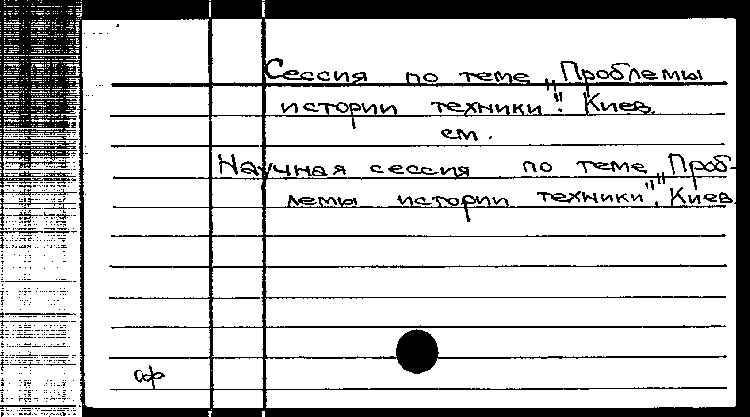 Сессия по теме „Проблемы
истории техники". Киев.
см.
Научная сессия по теме „Проб-
лемы истории техники". Киев.
аф